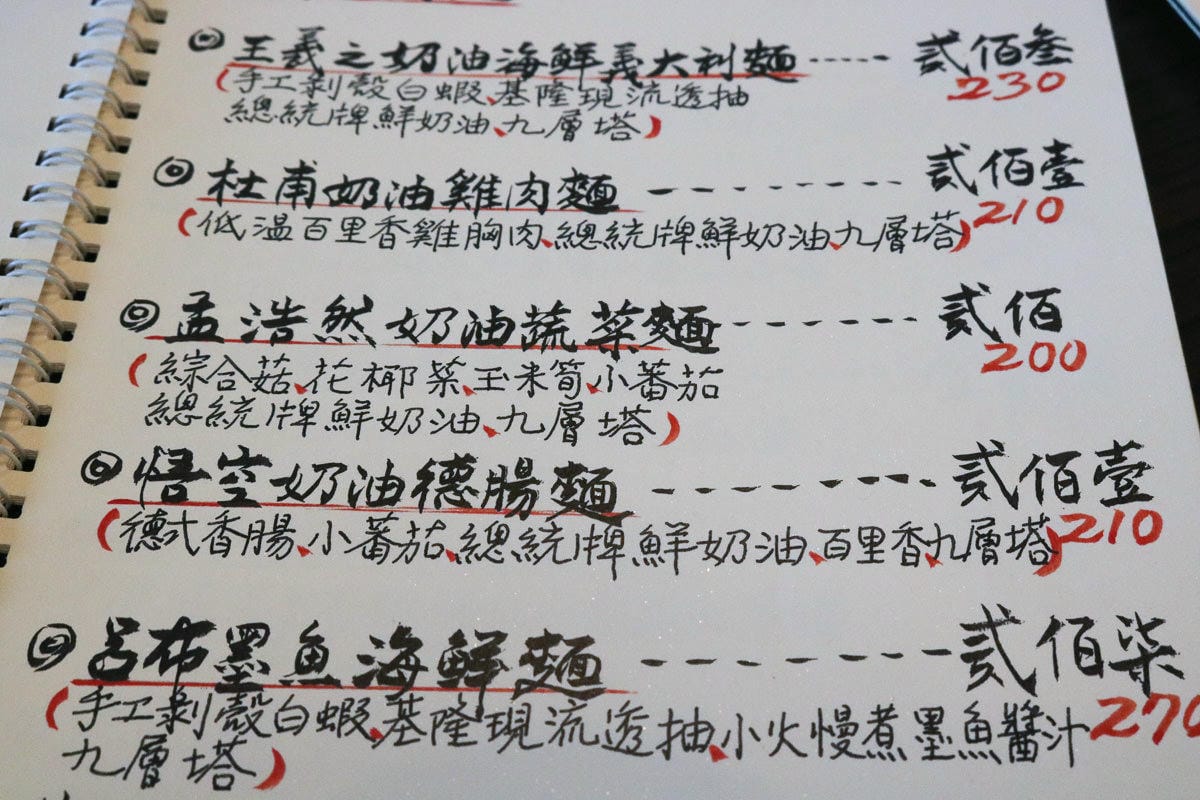 ◎王羲之奶油海鮮義大利麵-----貳佰叁
230
(手工剝殼白蝦、基隆現流透抽
總統牌鮮奶油、九層塔)
◎杜甫奶油雞肉麵--------貳佰壹
210
(低溫百里香雞胸肉、總統牌鮮奶油、九層塔)
◎孟浩然奶油蔬菜麵--------貳佰
200
(綜合菇、花椰菜、玉米筍、小蕃茄
總統牌鮮奶油、九層塔)
◎悟空奶油德腸麵--------貳佰壹
210
(德式香腸、小蕃茄、總統牌鮮奶油、百里香、九層塔)
◎呂布墨魚海鮮麵--------貳佰柒
270
(手工剝殼白蝦、基隆現流透抽、小火慢煮墨魚醬汁
九層塔)